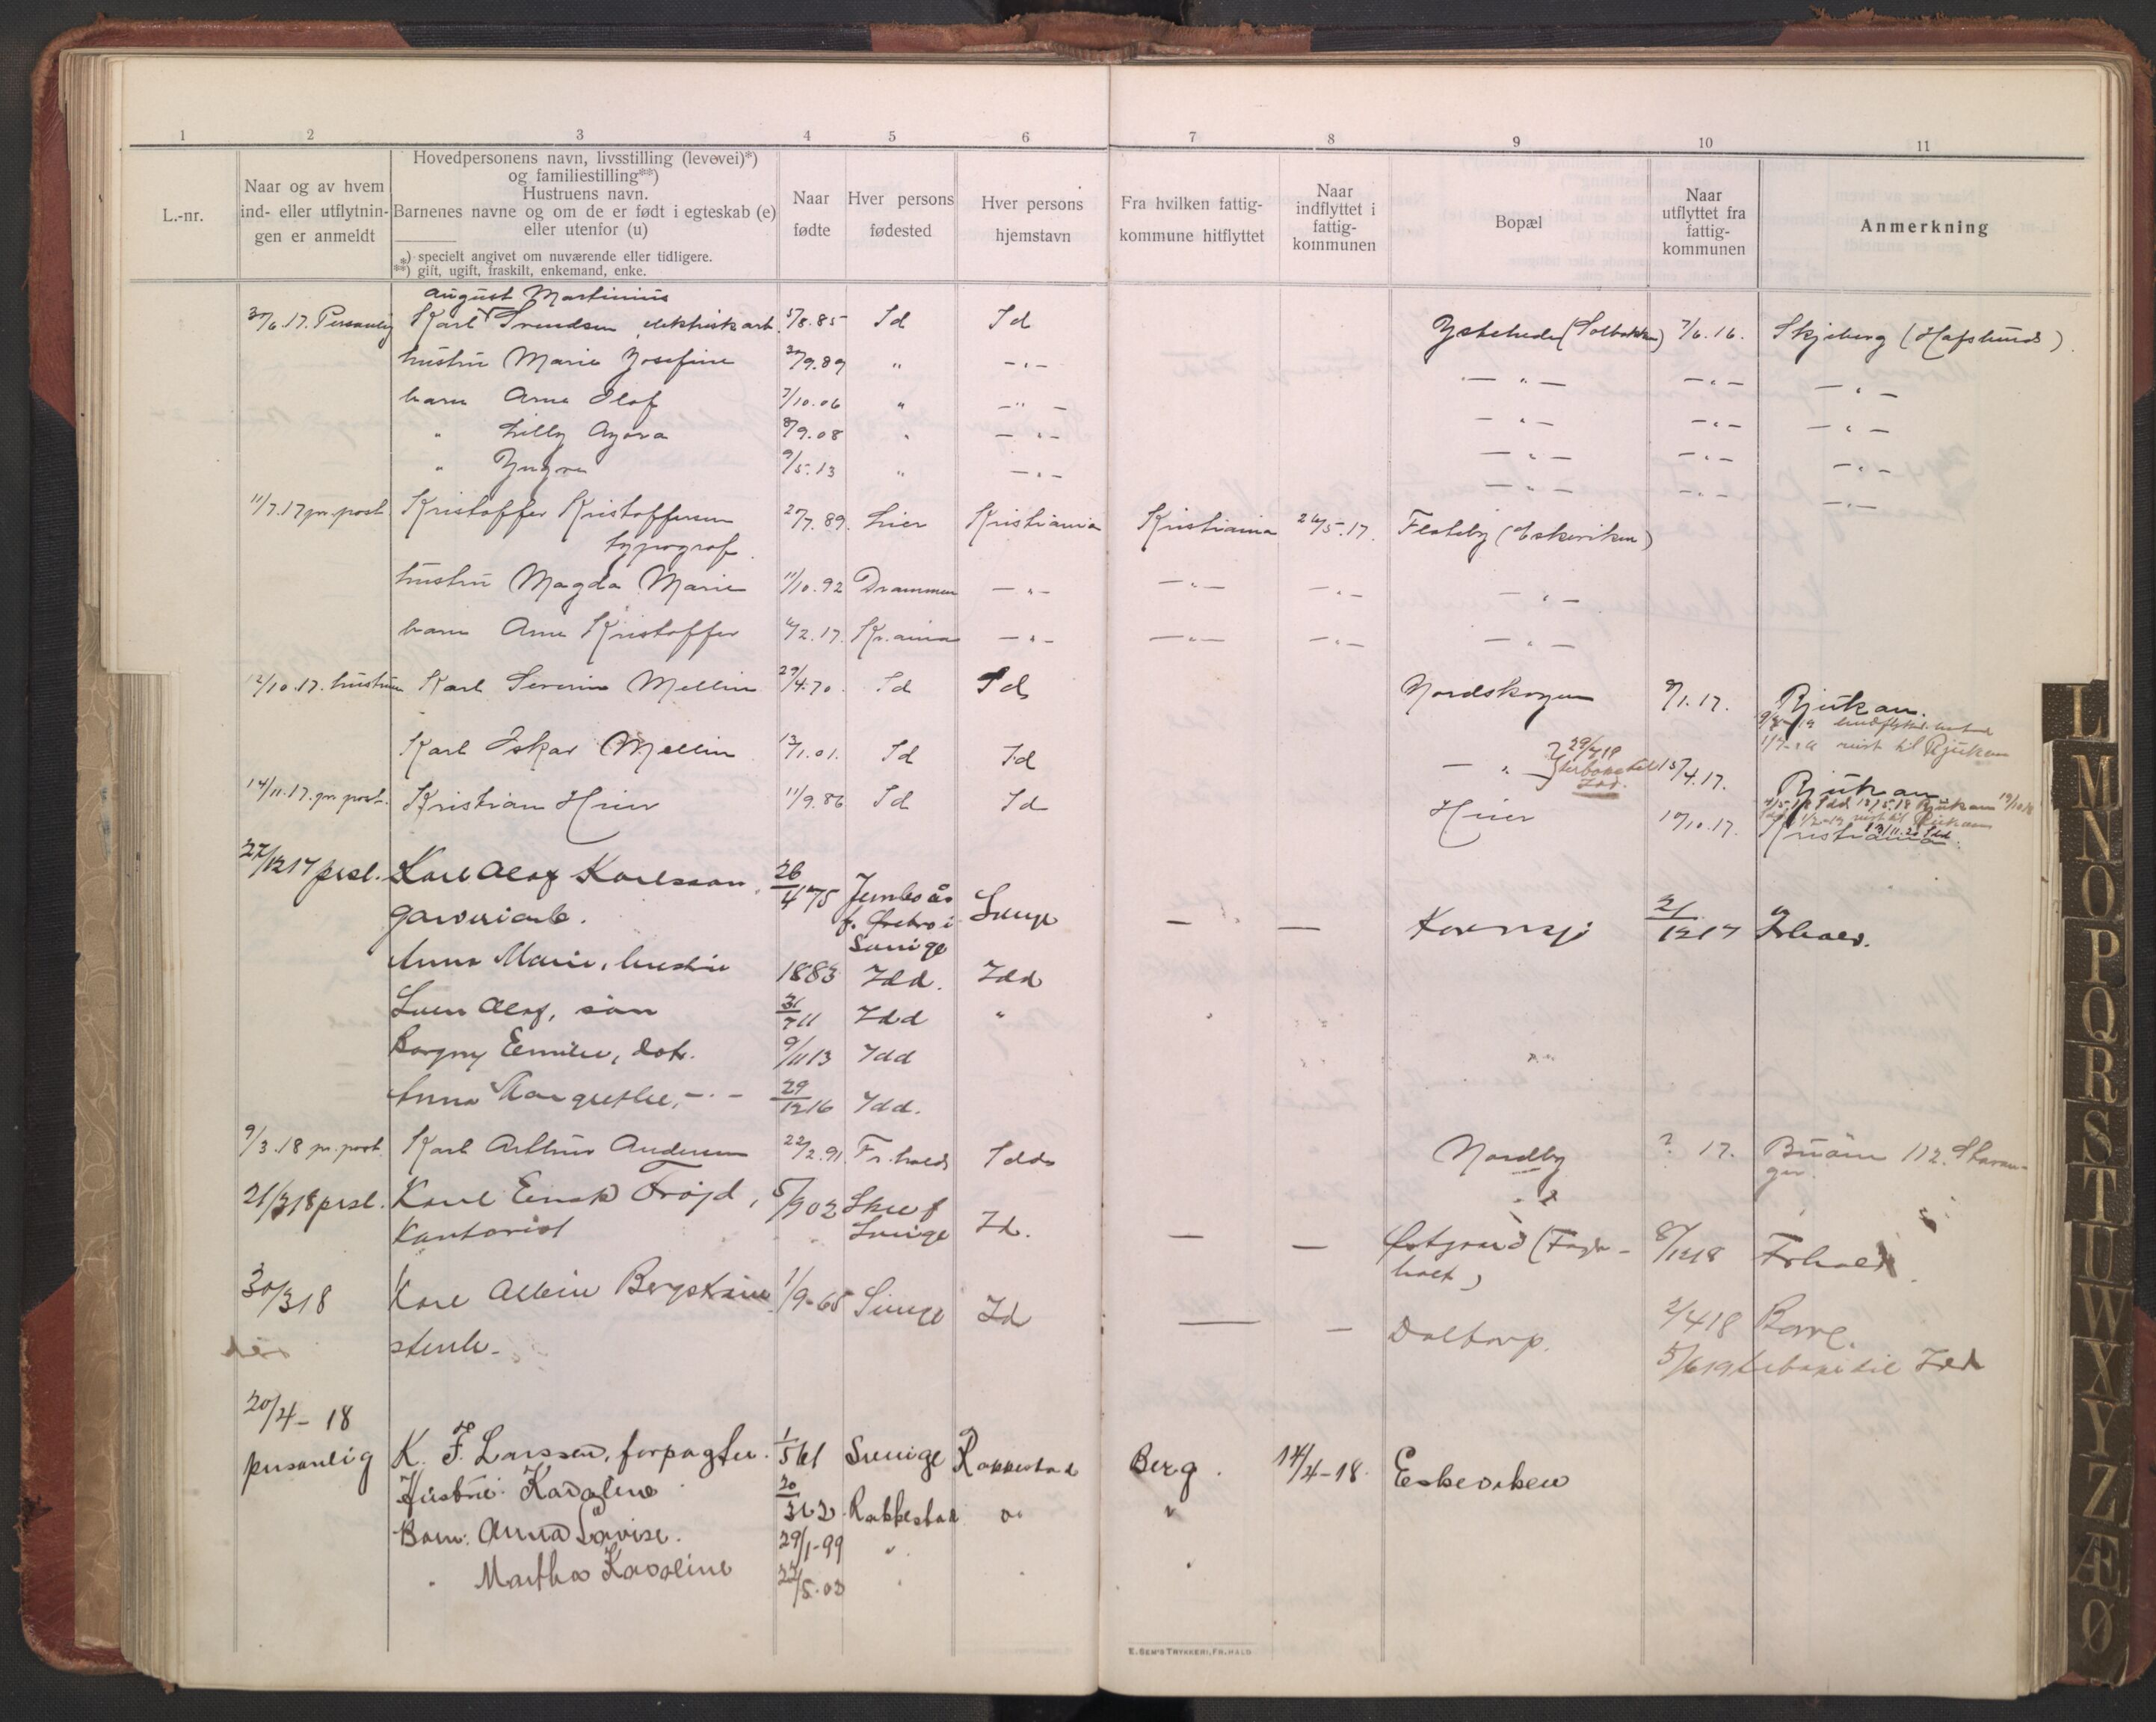 1 2 3 4 5 6 7 8 9 10 11
L.-nr.
Naar og av hvem
ind- eller utflytnin-
gen er anmeldt
Hovedpersonens navn, livsstilling (levevei)*)
og familiestilling**)
Hustruens navn.
Barnenes navne og om de er født i egteskab (e)
eller utenfor (u)
*) specielt angivet om nuværende eller tidligere.
**) gift, ugift, fraskilt, enkemand, enke.
Naar
fødte
Hver persons
fødested
Hver persons
hjemstavn
Fra hvilken fattig-
kommune hitflyttet
Naar
indflyttet i
fattig-
kommunen
Bopæl
Naar
utflyttet fra
fattig-
kommunen
Anmerkning
August Martinius
30/6.17. Personlig Karl Svendsen elektrisk arb. 5/8.85 Id Id Ystehede (Solbakken) 7/6.16. Skjeberg (Hafslund).
hustru Marie Josefine 30/9.89 " -"- -"- -"- -"-
barn Arne Olof 7/10.06 " -"- -"- -"- -"-
" Lilly Agora 8/9.08 " -"- -"- -"- -"-
" Yngva 9/5.13 " -"- -"- -"- -"-
11/7.17 pr. post Kristoffer Kristoffersen 27/7.89. Lier Kristiania Kristiania 26/5.17. Flateby (Eskeviken)
typograf.
hustru Magda Marie 11/10.92 Drammen -"- -"- -"- -"-
barn Arne Kristoffer 6/2.17. Kr.ania -"- -"- -"- -"-
12/10.17. hustruen Karl Severin Mellin 29/4.70. Id Id Nordskogen 9/1.17. Rjukan.
1/7-20 reist til Rjukan
Karl Oskar Mellin 13/1.01. Id Id -"- 29/4 18 terbake til Idd. 15/4.17. Rjukan
14/11.17. pr. post. Kristian Hier 11/9.86 Id Id Hier 10/10.17. Kristiania.
4/5.18 Idd 18/5.18 Rjukan 19/10 18
13/11.20 Idd
22/12 17 prsl. Karl Olof Karlsson, 26/4 75 Jernboås Sverige - - Kornsjø 21/12 17 Frhald.
garveriarb. f. Ørebro i
Sverige
Anna Marie, hustru 1883 Idd. Idd
Sven Olof, søn 31/7 11 Idd "
Borgny Emilie, dat. 9/11 13 Idd
Anna Margrethe, -"- 29/12 16 Idd.
9/3.18 pr. post. Karl Arthur Andersen 22/2.91. Fr.hald Idd Nordby ? 17. Buøen 112. Stavan-
ger
21/3 18 prsl. Karl Einar Frøjd, 5/9 02 Skee f Id. - - Østgaard (Fagerholt) 8/12 18 Frhald.
Kontorist Sverige
30/3 18 Karl Albin Bergstrøm 1/9-65 Sverige Id - - Daltorp. 2/4 18 Borge.
død stenh. 5/6 19 tilbake til Idd
20/4-18
personlig K. F. Larssen, forpagter. 1/5 61 Sverige Rakkestad Berg. 14/4-18. Eskeviken
Hustru: Karoline 20/3 62 Rakkestad " "
Barn: Anna Lovise. 29/1-99 "
" Martha Karoline 27/5.03 " " "
E. SEM'S TRYKKERI, FR.HALD
L
M
N
O
P
Q
R
S
T
U
W
X
Y
Z
Æ
Ø